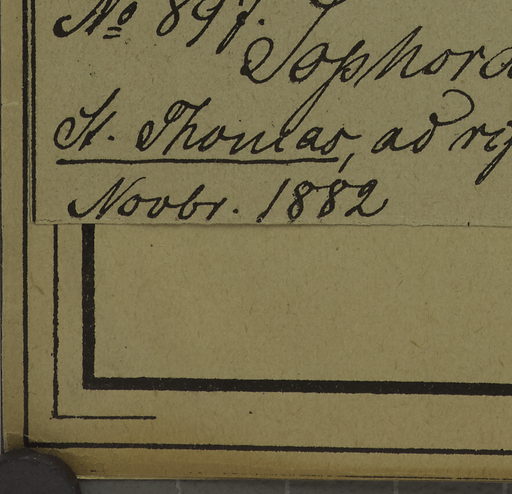 No 897.
Sophora
St. Thomas, ad
Novbr. 1882